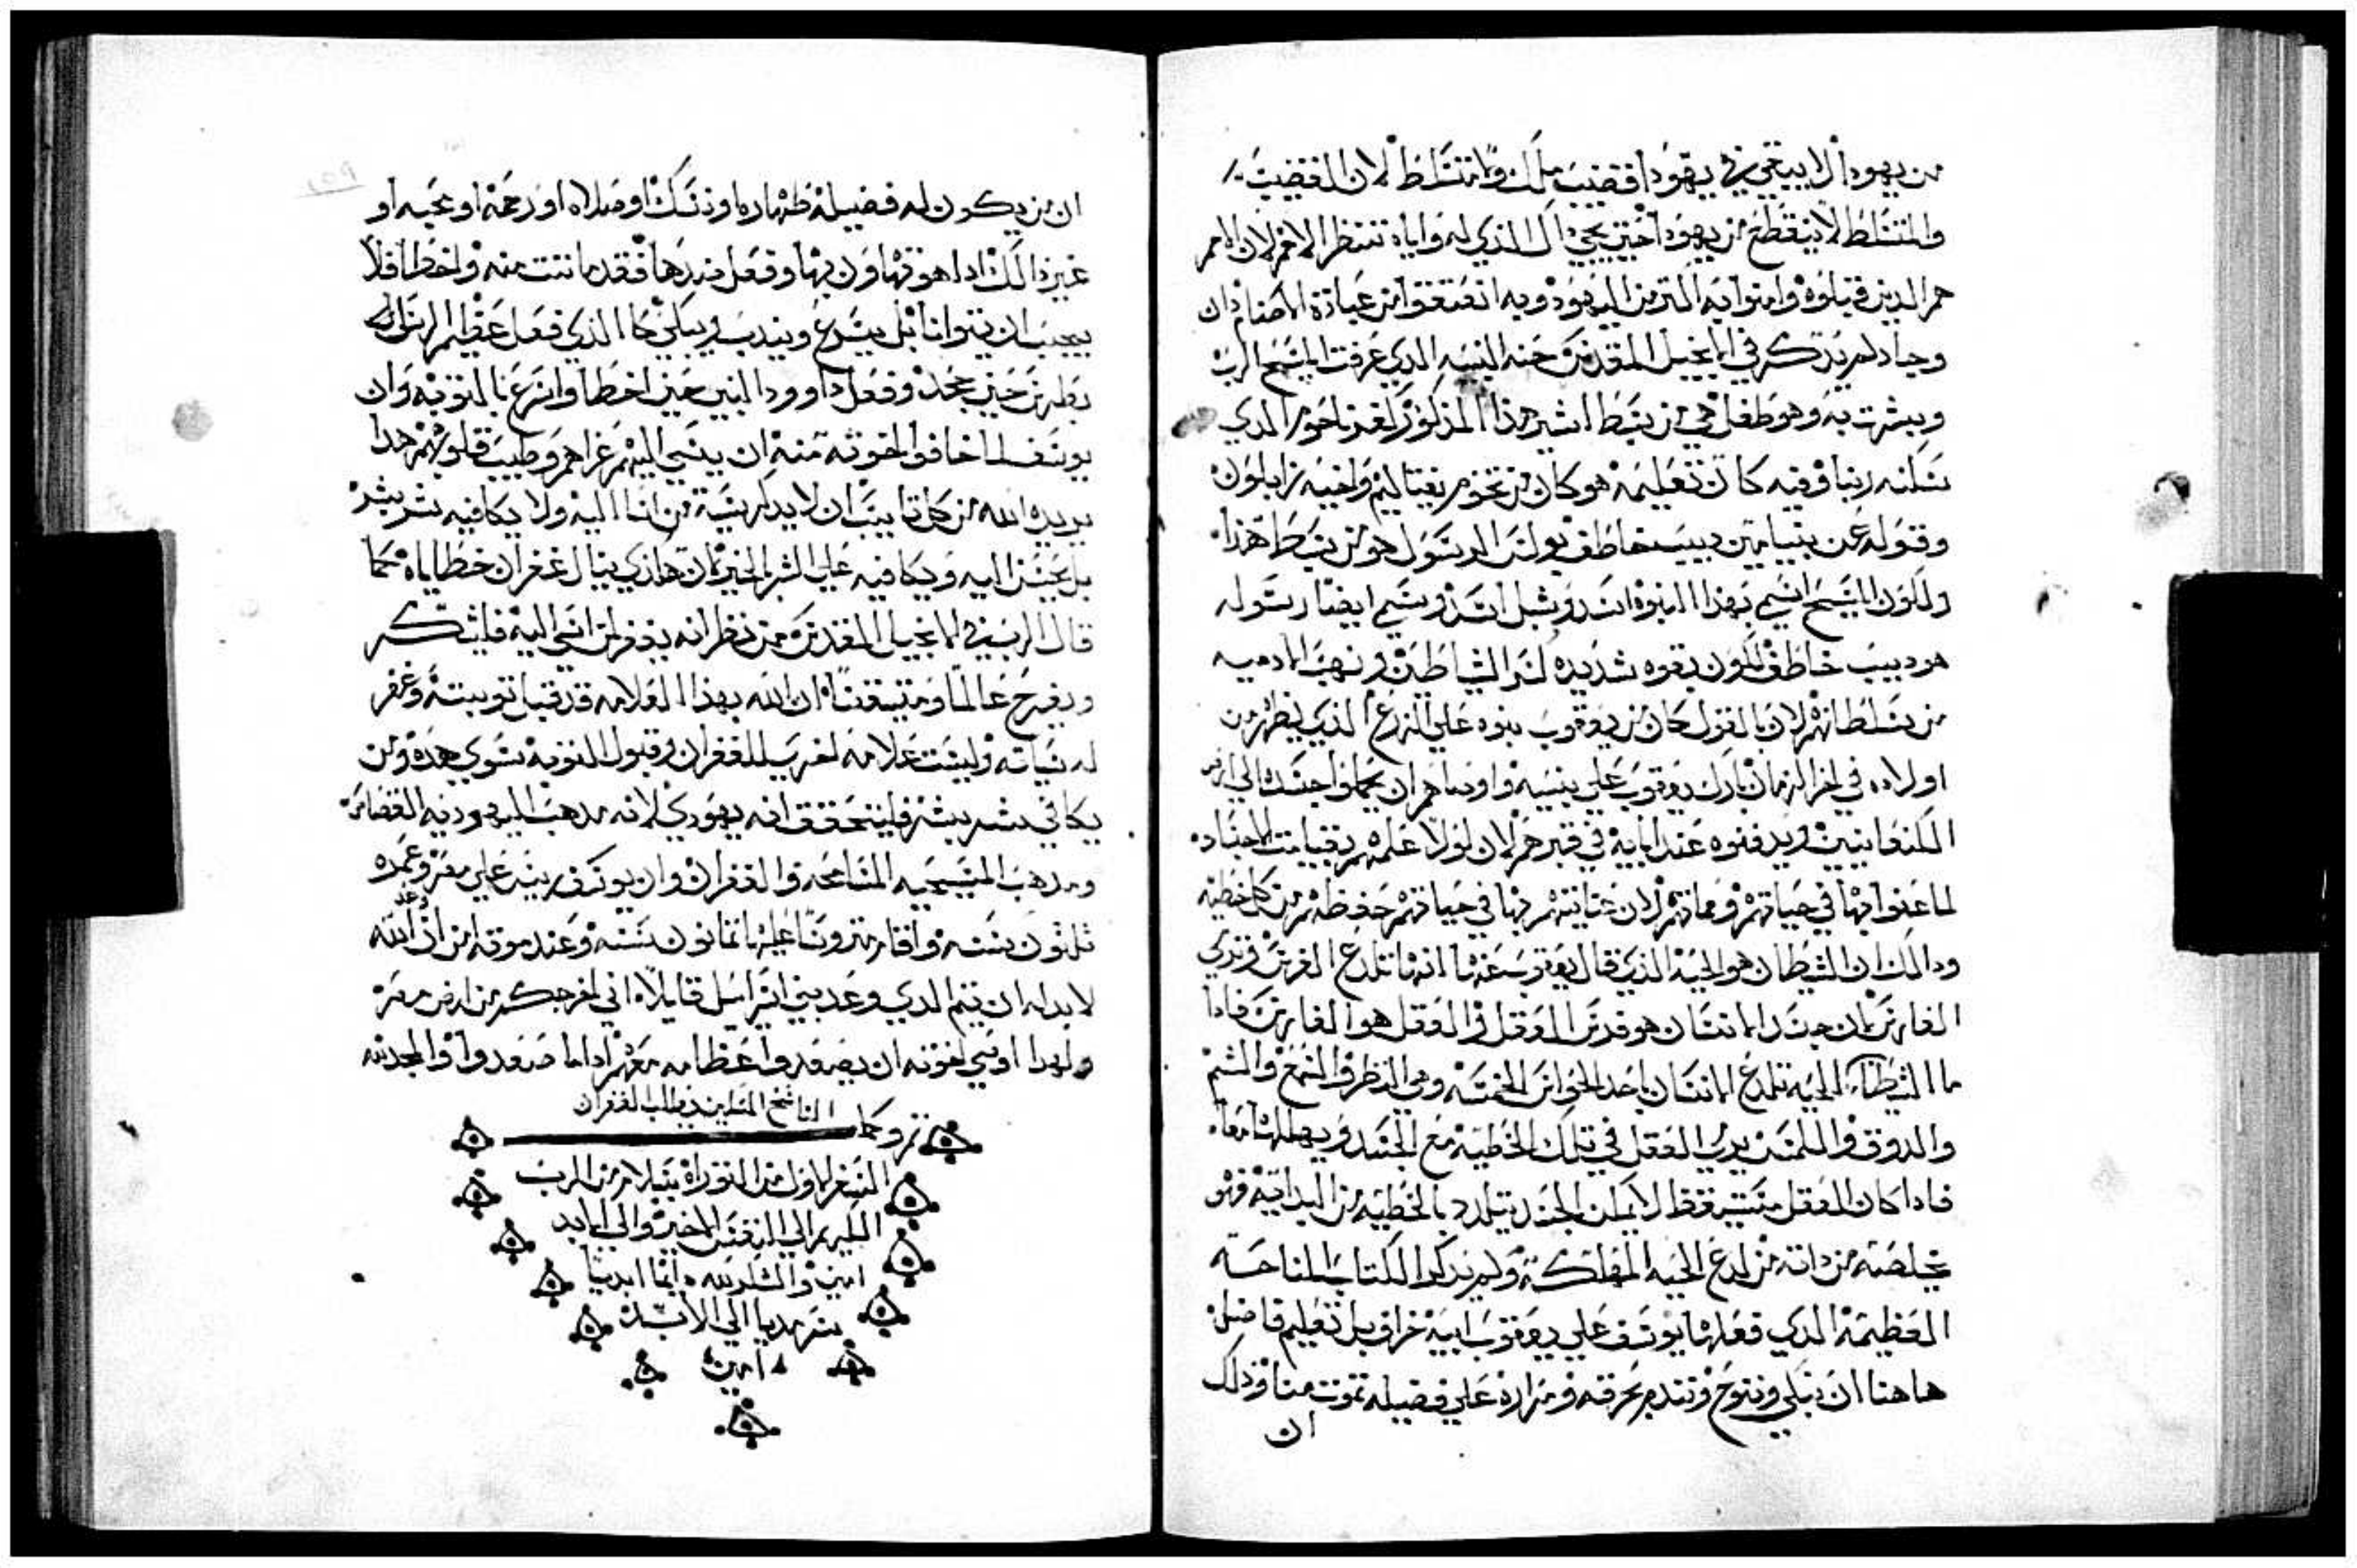 من يهودا لا يبتغي في يهودا قضيب ملك ولا متسلط لان القضيب
والمتسلط لا ينقطع من يهودا حتى يجي داك الذي له واياه تنتظر الامم لان الامم
هم الدين قبلوه وامنوا به اكتر من اليهود وبه انعتقوا من عبادة الاصنام ادان
وجاد لم يدكر في الانجيل المقدس حنه النبيه الدي عرفت المسيح الرب
وبشرت به وهو طفل هي من سبط اشير هذا المذكور لعزنا حور الدي
سكنه ربنا وفيه كان تعليمه هو كان من تخوم نفتاليم واخيه زابلون
وقوله عن بنيامين ديب خاطف بولس الرسول هو من سبط هذا
ولكون المسيح اسمي بهذا النبوه اسد وشبل اسد وسمي ايضا رسوله
هو ديب خاطف لكون بقوه شديده كسر الشياطين ونهب الادميه
من تسلطانهم لان بالقول كان من يعقوب بنوه علي الزرع الذي يظهر من
اولاده في اخر الزمان بارك يعقوب علي بنيه واوصاهم ان يحملوا جسده الي ارض
الكنعانيين ويدفنوه عند ابايه في قبرهم لان لولا علمهم بقيامت الاجساد
لما عنوا بها في حياتهم ومماتهم لان عنايتهم بها في حياتهم حفظهم من كل خطيه
ودالك ان الشيطان هو الحيه الذي قال يعقوب عنها انها تلدغ الفرس وتردي
الفارس لان جسد الانسان هو فرس العقل والعقل هو الفارس فادا
ما الشيطان الحيه تلدغ الانسان باحد الحواس الخمسه وهي النظر والسمع والشم
والدوق واللمس يدرك العقل في تلك الخطيه مع الجسد ويهلكهما معا
فادا كان العقل متيقظ لا يمكن الجسد يتلدد بالخطيه من البدايه فهو
يخلصه من داته من لدغ الحيه المهلكه ولم يدكر الكتاب المناحه
العظيمه الدي فعلها يوسف علي يعقوب ابيه خراف بل تعليم فاضل
هاهنا ان نبكي وننوح ونندم بحرقه ومراره علي فضيله تموت منا وذلك
ان
ان من يكون له فضيلة طهاره او نسك او صلاه او رحمه او محبه او
غير ذالك ادا هو تهاون بها وفعل ضدها فقد ماتت منه واخطا فلا
يجب ان يتوانا بل يسرع ويندب ويبكي كما الذي فعل عظيم الرسل
بطرس حين جحد وفعل داوود النبي حين اخطا واسرع بالتوبه وان
يوسف لما خافوا اخوته منه ان يسي اليهم عزاهم وطيب قلوبهم هدا
يريده الله من كل تايب ان لا يدكر سيه من اسا اليه ولا يكافيه بشر بشر
بل يحسن اليه ويكافيه علي الشر بالخير لان هادي ينال غفران خطاياه كما
قال الرب في الانجيل المقدس من نظر انه يغفر لمن اسي اليه فليشكر
ويفرح عالما ومتيقنا ان الله بهذا العلامه قد قبل توبته وغفر
له سياته وليست علامه اخري للغفران وقبول التوبه سوي هذه ومن
يكافي بشر بشر فليتحقق انه يهودي لانه مدهب اليهوديه القصاص
ومدهب المسيحيه المسامحه والغفران وان يوسف ريس علي مصر وعمره
ثلثون سنه واقام متروسا عليها تمانون سنه وعند موته امن ان وعد الله
لابد له ان يتم الدي وعد بني اسراييل قايلا اني اخرجكم من ارض مصر
ولهدا اوصي اخوته ان يصعدوا عظامه معهم ادا ما صعدوا والمجد لله
تم وكمل الناسخ المسكين يطلب الغفران
السفر الاول من التوراه بسلام من الرب
اللهم الي النفس الاخير والي الابد
امين والشكر لله دايما ابديا
سرمديا الي الابد
امين